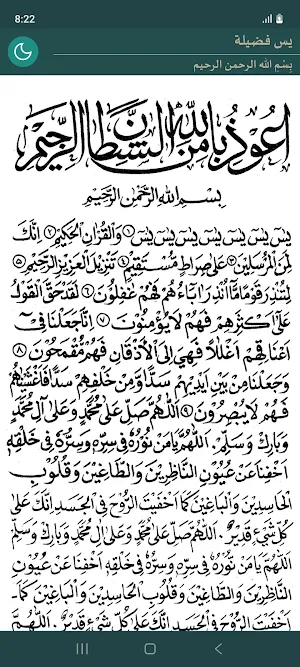 8:22
يس فضيلة
بِسْمِ الله الرحمن الرحيم
اَعُوذُ بِاللّٰهِ مِنَ الشَّيْطَانِ الرَّجِيْمِ
بِسْــمِ اللهِ الرَّحْمٰنِ الرَّحِيْمِ
يسٓ يسٓ يسٓ يسٓ يسٓ يسٓ يسٓ ١ وَالْقُرْاٰنِ الْحَكِيْمِ ٢ اِنَّكَ
لَمِنَ الْمُرْسَلِيْنَ ٣ عَلٰى صِرَاطٍ مُسْتَقِيْمٍ ٤ تَنْزِيْلَ الْعَزِيْزِ الرَّحِيْمِ ٥
لِتُنْذِرَ قَوْمًا مَّا اُنْذِرَ اٰبَاءُهُمْ فَهُمْ غٰفِلُوْنَ ٦ لَقَدْ حَقَّ الْقَوْلُ
عَلٰى اَكْثَرِهِمْ فَهُمْ لَا يُؤْمِنُوْنَ ٧ اِنَّا جَعَلْنَا فِىْ
اَعْنَاقِهِمْ اَغْلٰلًا فَهِيَ اِلَى الْاَذْقَانِ فَهُمْ مُّقْمَحُوْنَ ٨
وَجَعَلْنَا مِنْ بَيْنِ اَيْدِيْهِمْ سَدًّا وَّمِنْ خَلْفِهِمْ سَدًّا فَاَغْشَيْنٰهُمْ
فَهُمْ لَا يُبْصِرُوْنَ ٩ اَللّٰهُمَّ صَلِّ عَلٰى مُحَمَّدٍ وَعَلٰى اٰلِ مُحَمَّدٍ
وَبَارِكْ وَسَلِّمْ. اَللّٰهُمَّ يَا مَنْ نُوْرُهُ فِيْ سِرِّهِ وَسِرُّهُ فِيْ خَلْقِهِ
اَخْفِنَا عَنْ عُيُوْنِ النَّاظِرِيْنَ وَالطَّاغِيْنَ وَقُلُوْبِ
الْحَاسِدِيْنَ وَالْبَاغِيْنَ كَمَا اَخْفَيْتَ الرُّوْحَ فِي الْجَسَدِ اِنَّكَ عَلٰى
كُلِّ شَيْءٍ قَدِيْرٌ. اَللّٰهُمَّ صَلِّ عَلٰى مُحَمَّدٍ وَعَلٰى اٰلِ مُحَمَّدٍ وَبَارِكْ وَسَلِّمْ
اَللّٰهُمَّ يَا مَنْ نُوْرُهُ فِيْ سِرِّهِ وَسِرُّهُ فِيْ خَلْقِهِ اَخْفِنَا عَنْ عُيُوْنِ
النَّاظِرِيْنَ وَالطَّاغِيْنَ وَقُلُوْبِ الْحَاسِدِيْنَ وَالْبَاغِيْنَ كَمَا
اَخْفَيْتَ الرُّوْحَ فِي الْجَسَدِ اِنَّكَ عَلٰى كُلِّ شَيْءٍ قَدِيْرٌ. اَللّٰهُمَّ